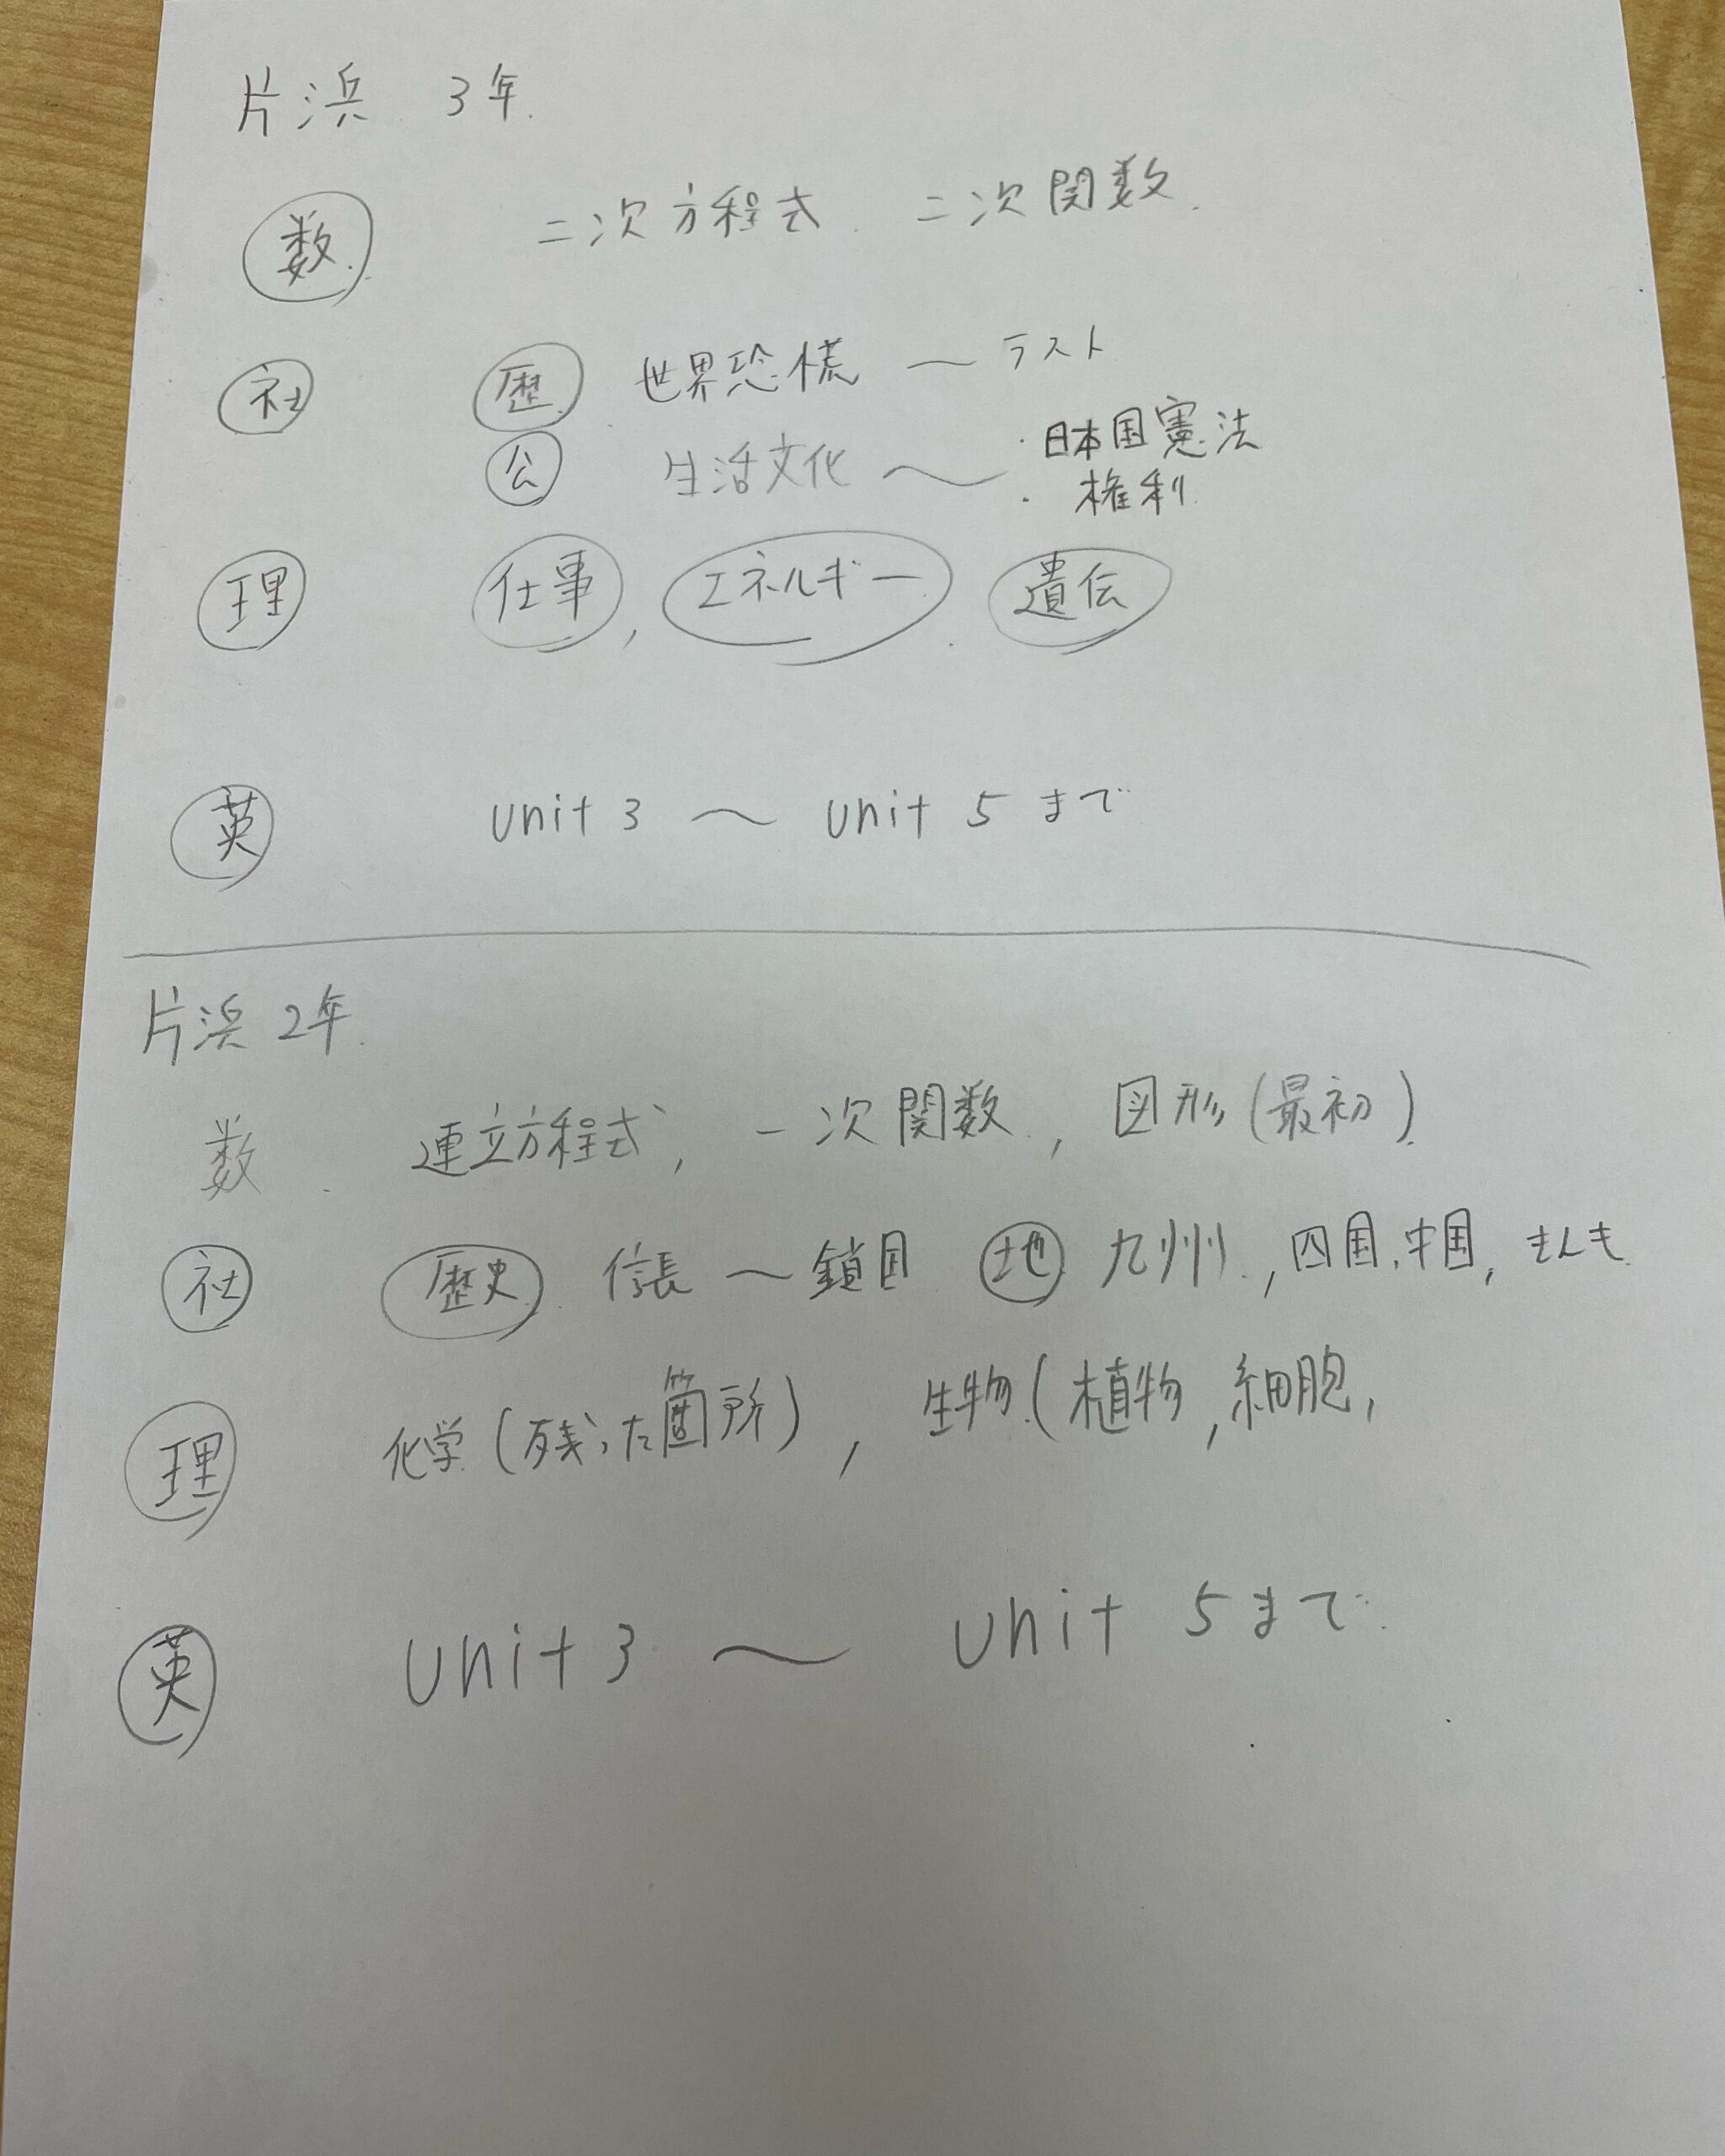 片浜 3年.
数. 二次方程式. 二次関数.
社 歴 世界恐慌 〜 ラスト
公 生活文化 〜 ・日本国憲法
・権利.
理 仕事, エネルギー. 遺伝
英 unit 3 〜 unit 5 まで
片浜 2年.
数. 連立方程式, 一次関数, 図形(最初)
社 歴史. 信長 〜 鎖国 地 九州, 四国, 中国,
理 化学(残った箇所), 生物(植物, 細胞,
英 unit 3 〜 unit 5まで.